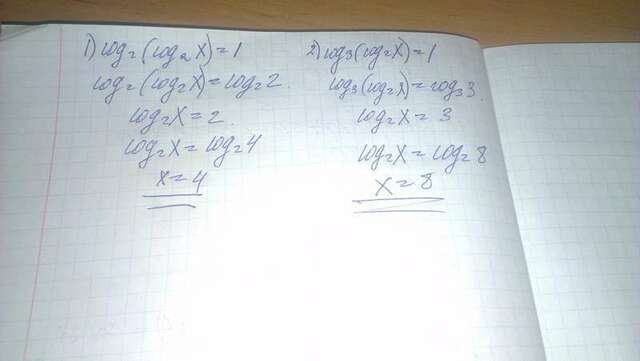 1) log₂(log₂X)=1
log₂(log₂X)=log₂2.
log₂X=2.
log₂X=log₂4
x=4
2) log₃(log₂X)=1
log₃(log₂X)=log₃3.
log₂X=3
log₂X=log₂8
X=8